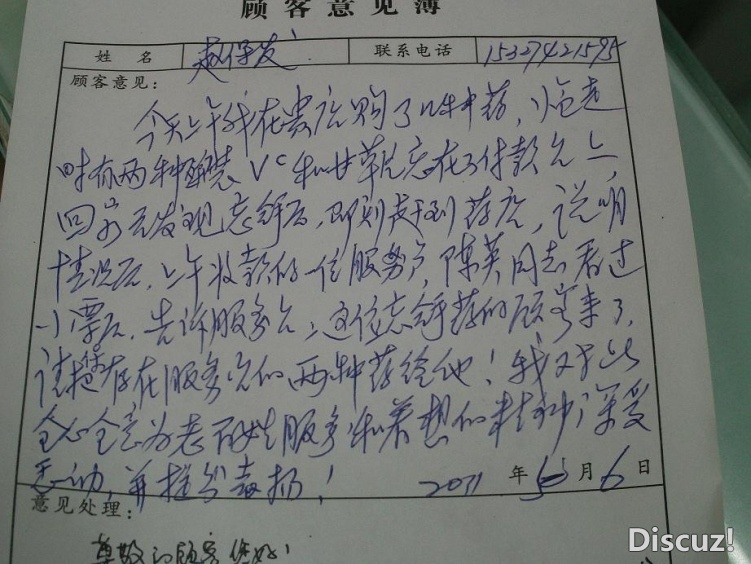 顾客意见簿
姓 名 赵保发 联系电话 15327421595
顾客意见:
今天上午我在贵店购了几种中药,临走
时有两种瓶装VC和甘草片忘在了付款台上,
回家后发现忘拿后,即刻赶到药店,说明
情况后,上午收款的一位服务员陈英同志看过
小票后,告诉服务台:这位忘拿药的顾客来了,
请把存在服务台的两种药给他!我对于此
全心全意为老百姓服务和着想的精神深受
感动,并提出表扬!
2011 年 月 6 日
意见处理:
尊敬的顾客您好!
Discuz!